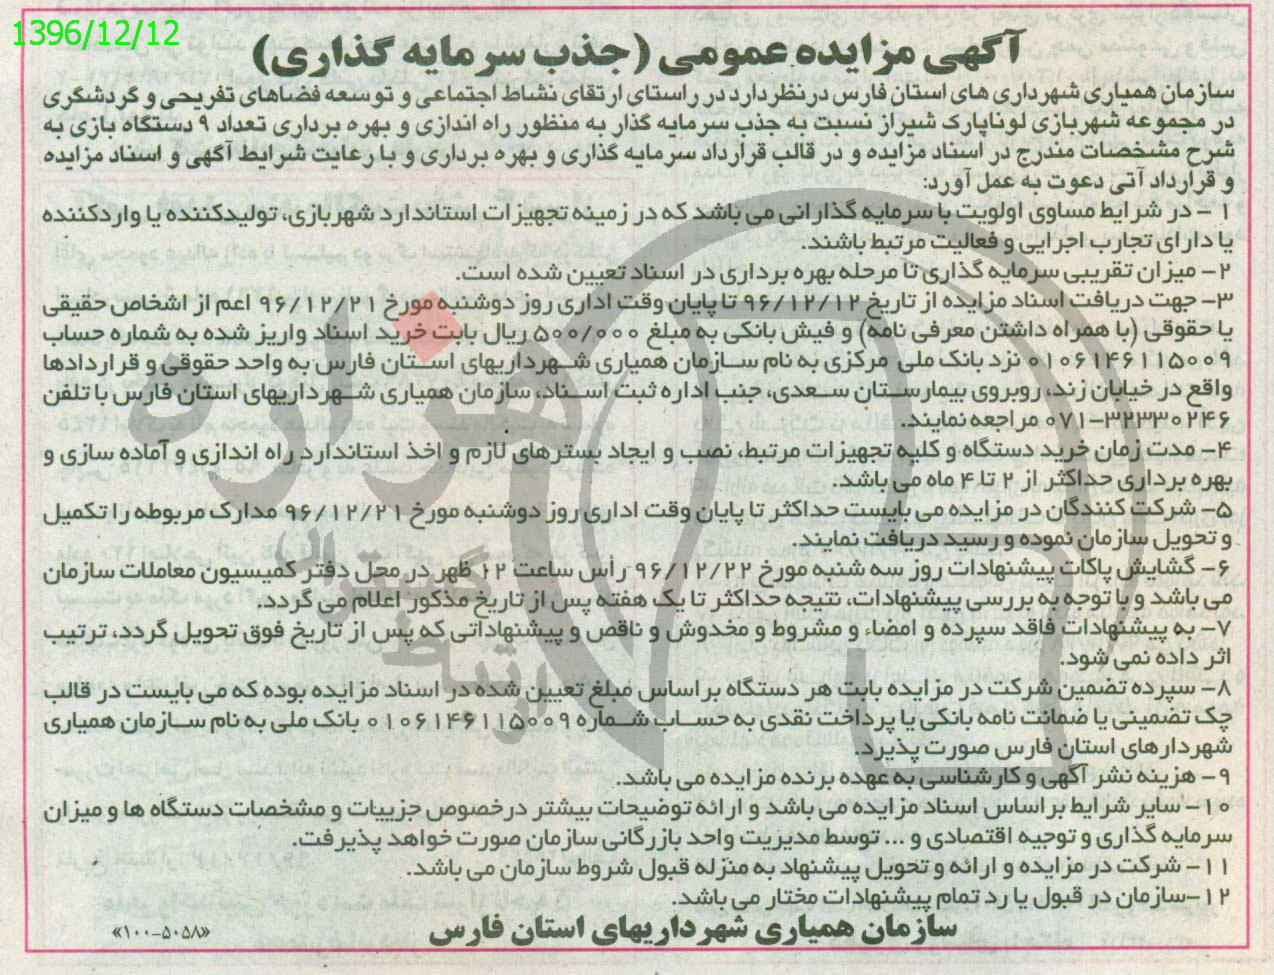 1396/12/12
آگهی مزایده عمومی (جذب سرمایه گذاری)
سازمان همیاری شهرداری های استان فارس در نظر دارد در راستای ارتقای نشاط اجتماعی و توسعه فضاهای تفریحی و گردشگری
در مجموعه شهربازی لوناپارک شیراز نسبت به جذب سرمایه گذار به منظور راه اندازی و بهره برداری تعداد ۹ دستگاه بازی به
شرح مشخصات مندرج در اسناد مزایده و در قالب قرارداد سرمایه گذاری و بهره برداری و با رعایت شرایط آگهی و اسناد مزایده
و قرارداد آتی دعوت به عمل آورد:
۱- در شرایط مساوی اولویت با سرمایه گذارانی می باشد که در زمینه تجهیزات استاندارد شهربازی، تولیدکننده یا واردکننده
یا دارای تجارب اجرایی و فعالیت مرتبط باشند.
۲- میزان تقریبی سرمایه گذاری تا مرحله بهره برداری در اسناد تعیین شده است.
۳- جهت دریافت اسناد مزایده از تاریخ ۹۶/۱۲/۱۲ تا پایان وقت اداری روز دوشنبه مورخ ۹۶/۱۲/۲۱ اعم از اشخاص حقیقی
یا حقوقی (با همراه داشتن معرفی نامه) و فیش بانکی به مبلغ ۵۰۰/۰۰۰ ریال بابت خرید اسناد واریز شده به شماره حساب
۰۱۰۶۱۴۶۱۱۵۰۰۹ نزد بانک ملی مرکزی به نام سازمان همیاری شهرداریهای استان فارس به واحد حقوقی و قراردادها
واقع در خیابان زند، روبروی بیمارستان سعدی، جنب اداره ثبت اسناد، سازمان همیاری شهرداریهای استان فارس با تلفن
۰۷۱-۳۲۳۳۰۲۴۶ مراجعه نمایند.
۴- مدت زمان خرید دستگاه و کلیه تجهیزات مرتبط، نصب و ایجاد بسترهای لازم و اخذ استاندارد راه اندازی و آماده سازی و
بهره برداری حداکثر از ۲ تا ۴ ماه می باشد.
۵- شرکت کنندگان در مزایده می بایست حداکثر تا پایان وقت اداری روز دوشنبه مورخ ۹۶/۱۲/۲۱ مدارک مربوطه را تکمیل
و تحویل سازمان نموده و رسید دریافت نمایند.
۶- گشایش پاکات پیشنهادات روز سه شنبه مورخ ۹۶/۱۲/۲۲ رأس ساعت ۱۲ ظهر در محل دفتر کمیسیون معاملات سازمان
می باشد و با توجه به بررسی پیشنهادات، نتیجه حداکثر تا یک هفته پس از تاریخ مذکور اعلام می گردد.
۷- به پیشنهادات فاقد سپرده و امضاء و مشروط و مخدوش و ناقص و پیشنهاداتی که پس از تاریخ فوق تحویل گردد، ترتیب
اثر داده نمی شود.
۸- سپرده تضمین شرکت در مزایده بابت هر دستگاه بر اساس مبلغ تعیین شده در اسناد مزایده بوده که می بایست در قالب
چک تضمینی یا ضمانت نامه بانکی یا پرداخت نقدی به حساب شماره ۰۱۰۶۱۴۶۱۱۵۰۰۹ بانک ملی به نام سازمان همیاری
شهردارهای استان فارس صورت پذیرد.
۹- هزینه نشر آگهی و کارشناسی به عهده برنده مزایده می باشد.
۱۰- سایر شرایط بر اساس اسناد مزایده می باشد و ارائه توضیحات بیشتر درخصوص جزییات و مشخصات دستگاه ها و میزان
سرمایه گذاری و توجیه اقتصادی و ... توسط مدیریت واحد بازرگانی سازمان صورت خواهد پذیرفت.
۱۱- شرکت در مزایده و ارائه و تحویل پیشنهاد به منزله قبول شروط سازمان می باشد.
۱۲-سازمان در قبول یا رد تمام پیشنهادات مختار می باشد.
سازمان همیاری شهرداریهای استان فارس
«۱۰۰-۵۰۵۸»